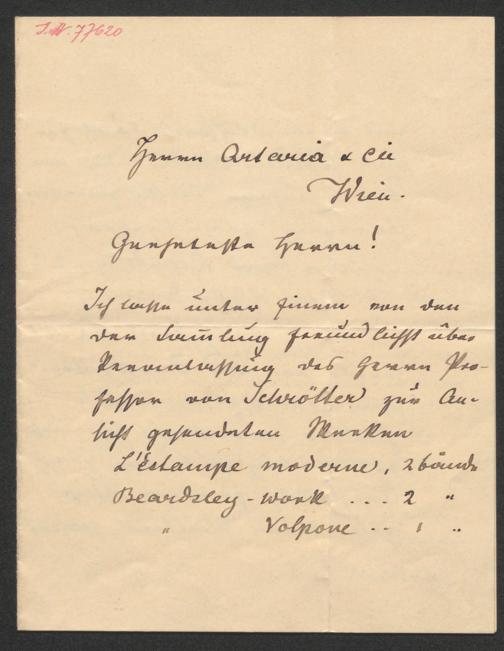 I.N. 77620
Herrn Artaria & Cie
Wien.
Geehrteste Herrn!
Ich lasse unter Einem von den
der Samlung freundlichst über
Veranlassung des Herrn Pro-
fessor von Schrötter zur An-
sicht gesendeten Werken
L'Éstampe moderne, 2 bände
Beardsley-work ... 2 "
" Volpone .. 1 "